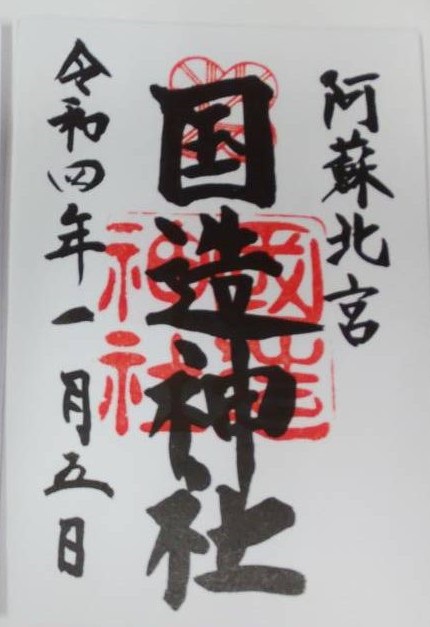 阿蘇北宮
国造神社
國造神社
令和四年一月五日